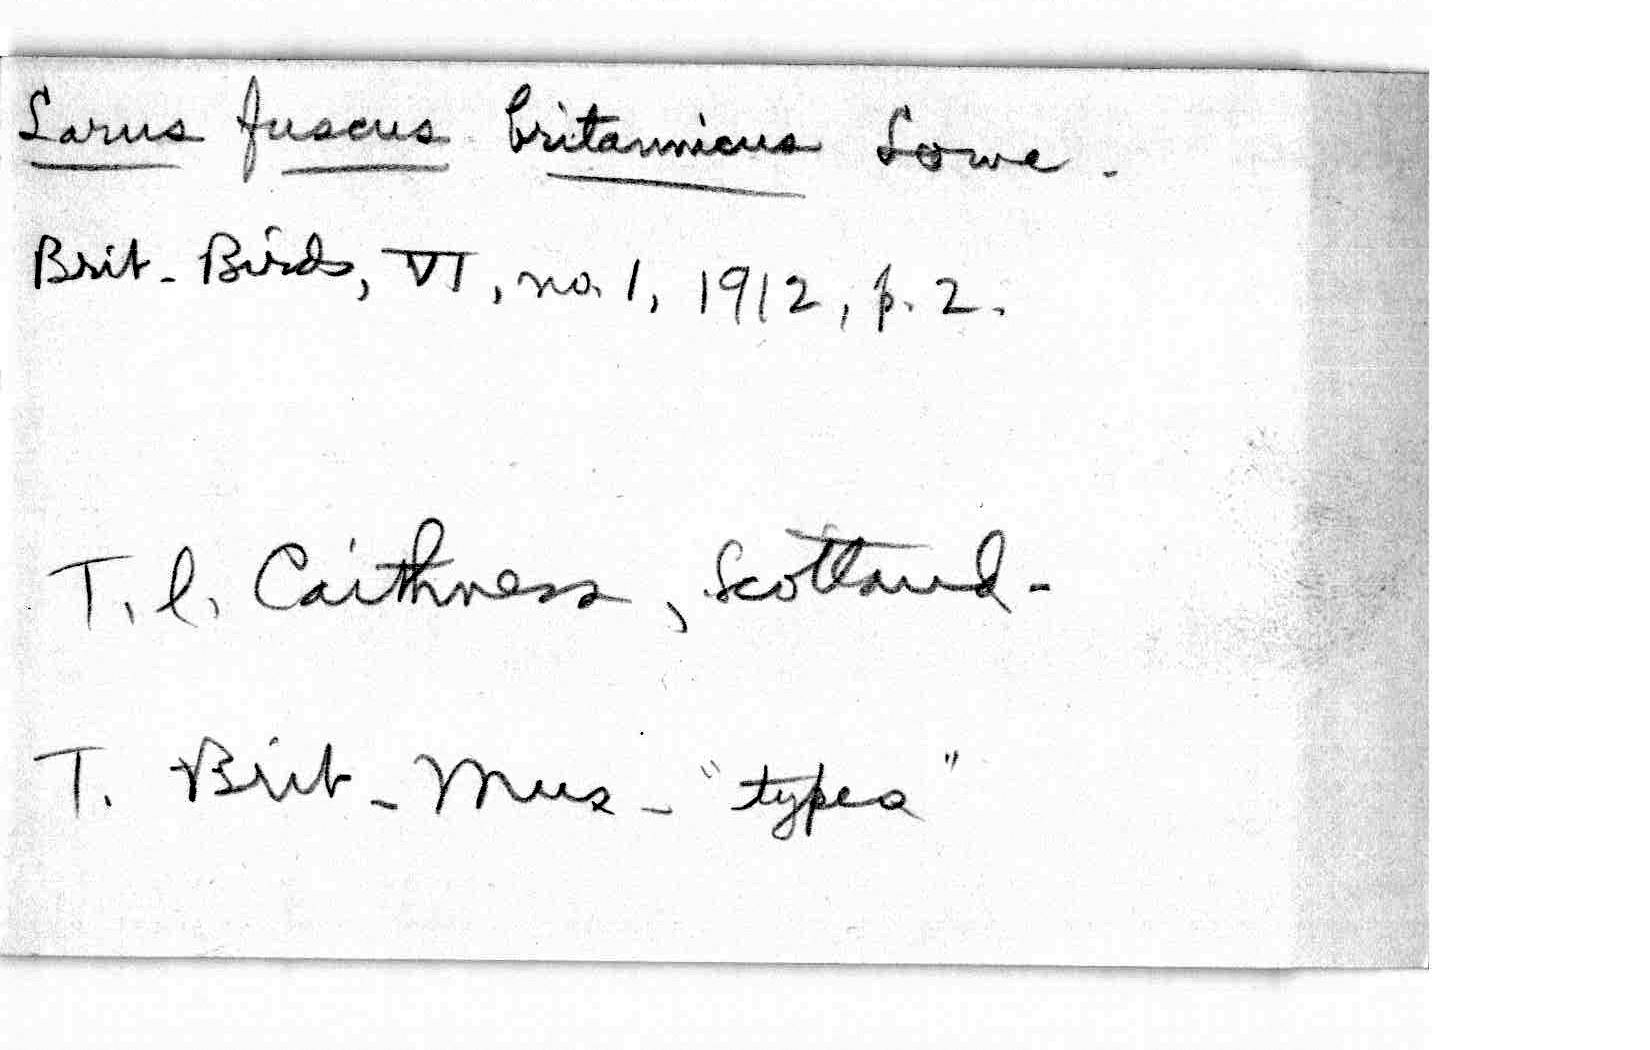 Larus fuscus britannicus Lowe.
Brit. Birds, VI, no. 1, 1912, p. 2.
T. l. Caithness, Scotland.
T. Brit. Mus. "types"